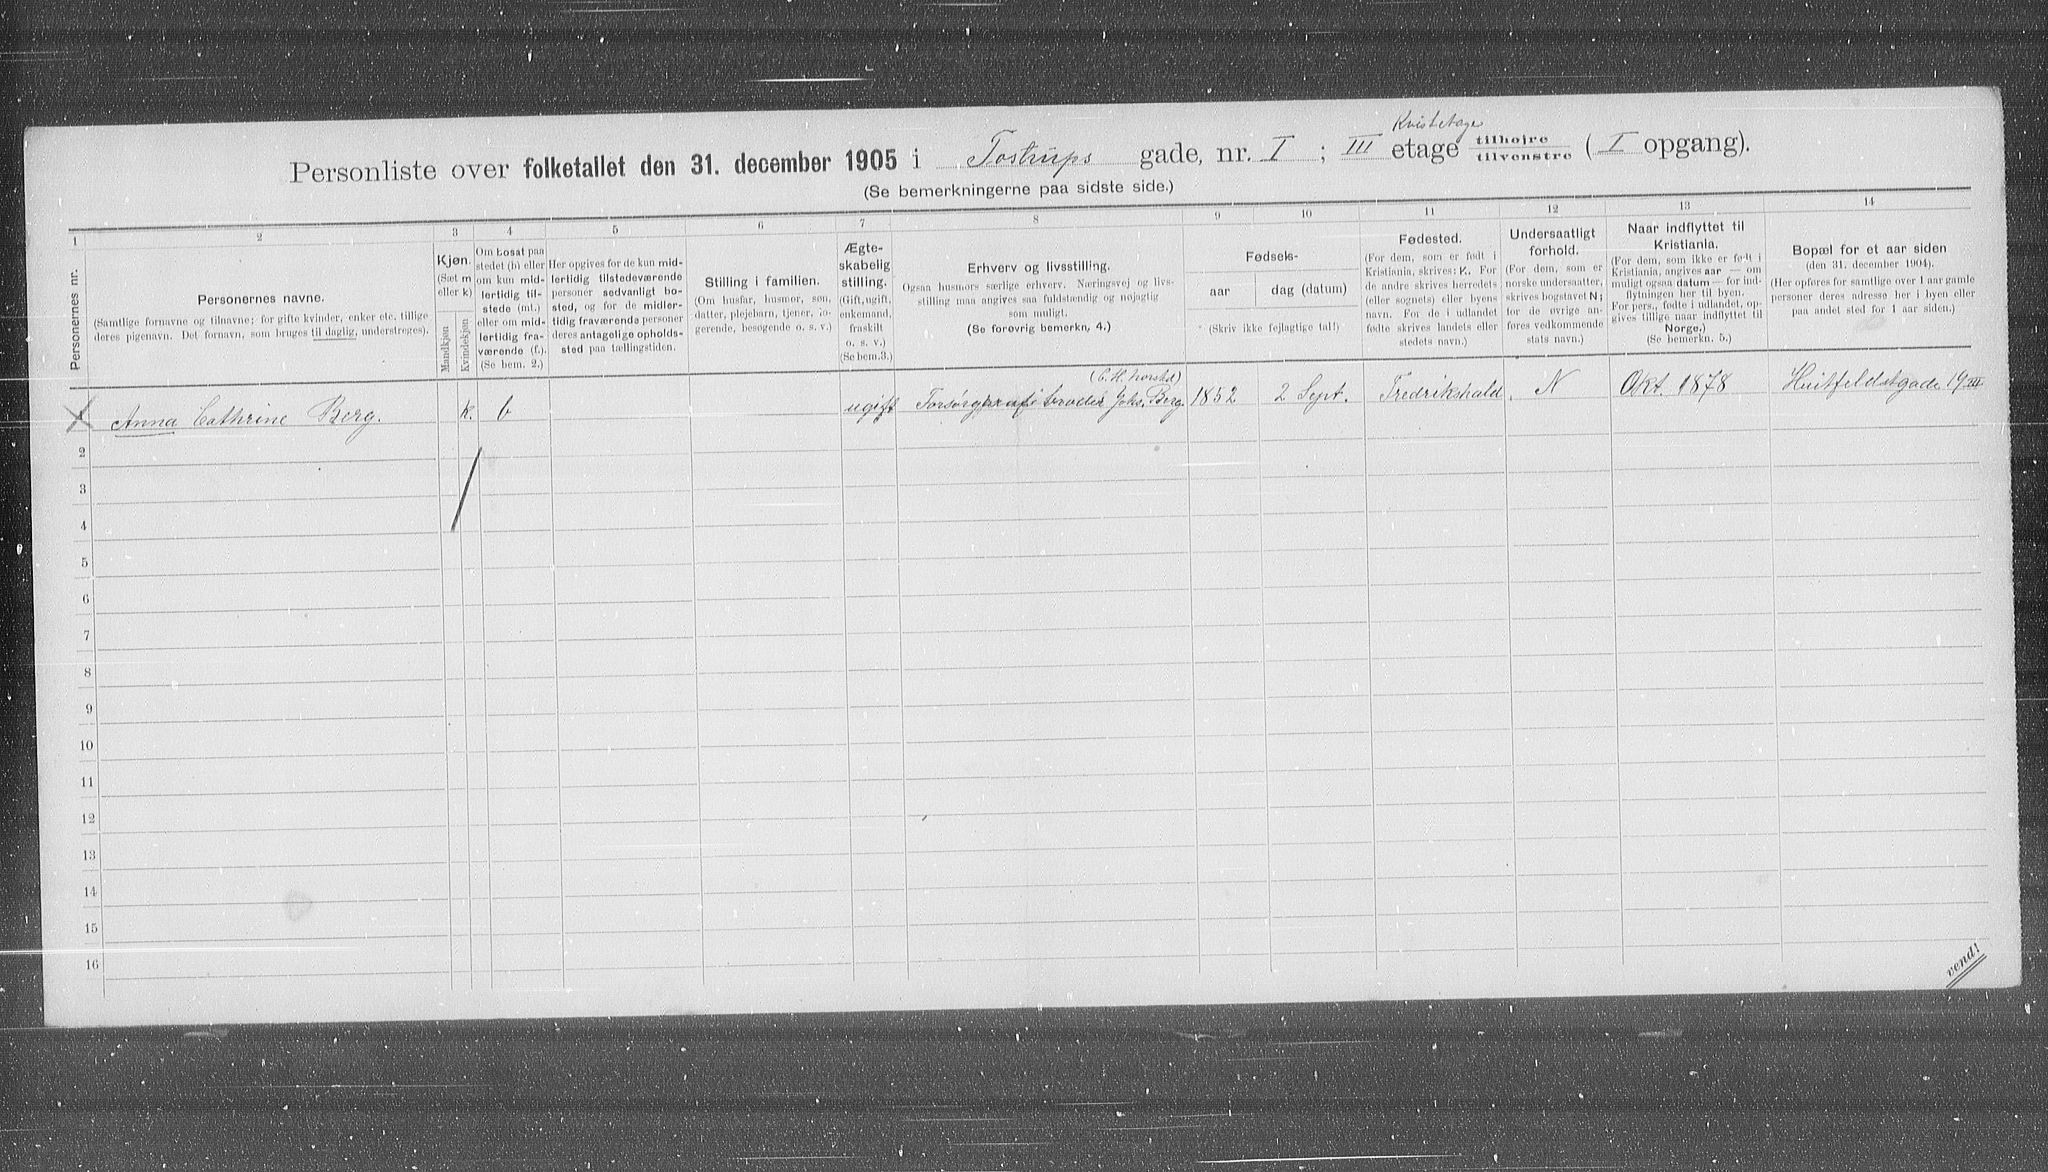 Kvistetage
Personliste over folketallet den 31. december 1905 i Tostrups gade, nr. I ; III etage tilhøjre tilvenstre ( I opgang).
(Se bemerkningerne paa sidste side.)
1 2 3 4 5 6 7 8 9 10 11 12 13 14
Personernes nr.
Personernes navne.
(Samtlige fornavne og tilnavne; for gifte kvinder, enker etc. tillige
deres pigenavn. Det fornavn, som bruges til daglig, understreges).
Kjøn.
(Sæt m
eller k)
Mandkjøn
Kvindekjøn
Om bosat paa
stedet (b) eller
om kun mid-
lertidig til-
stede (mt.)
eller om mid-
lertidig fra-
værende (f.).
(Se bem. 2.)
Her opgives for de kun mid-
lertidig tilstedeværende
personer sedvanligt bo-
sted, og for de midler-
tidig fraværende personer
deres antagelige opholds-
sted paa tællingstiden.
Stilling i familien.
(Om husfar, husmor, søn,
datter, plejebarn, tjener, lo-
gerende, besøgende o. s. v.)
Ægte-
skabelig
stilling.
(Gift, ugift,
enkemand,
fraskilt
o. s. v.)
(Se bem.3.)
Erhverv og livsstilling.
Ogsaa husmors særlige erhverv. Næringsvej og livs-
stilling maa angives saa fuldstændig og nøjagtig
som muligt.
(Se forøvrig bemerkn, 4.)
Fødsels-
aar
dag (datum)
(Skriv ikke fejlagtige tal!)
Fødested.
(For dem, som er født i
Kristiania, skrives: K. For
de andre skrives herredets
(eller sognets) eller byens
navn. For de i udlandet
fødte skrives landets eller
stedets navn.)
Undersaatligt
forhold.
(For dem, som er
norske undersaatter,
skrives bogstavet N;
for de øvrige an-
føres vedkommende
stats navn.)
Naar indflyttet til
Kristiania.
(For dem, som ikke er født i
Kristiania, angives aar — om
muligt ogsaa datum — for ind-
flytningen her til byen.
For pers., fødte i udlandet, op-
gives tillige naar indflyttet til
Norge.)
(Se bemerkn. 5.)
Bopæl for et aar siden
(den 31. december 1904).
(Her opføres for samtlige over 1 aar gamle
personer deres adresse her i byen eller
paa andet sted for 1 aar siden.)
1 Anna Cathrine Berg. k. b ugift Forsørges af broder Johs. Berg. 1852 2 Sept. Fredrikshald N Okt. 1878 Huitfeldtsgade 19 III
2
3
4
5
6
7
8
9
10
11
12
13
14
15
16
vend!